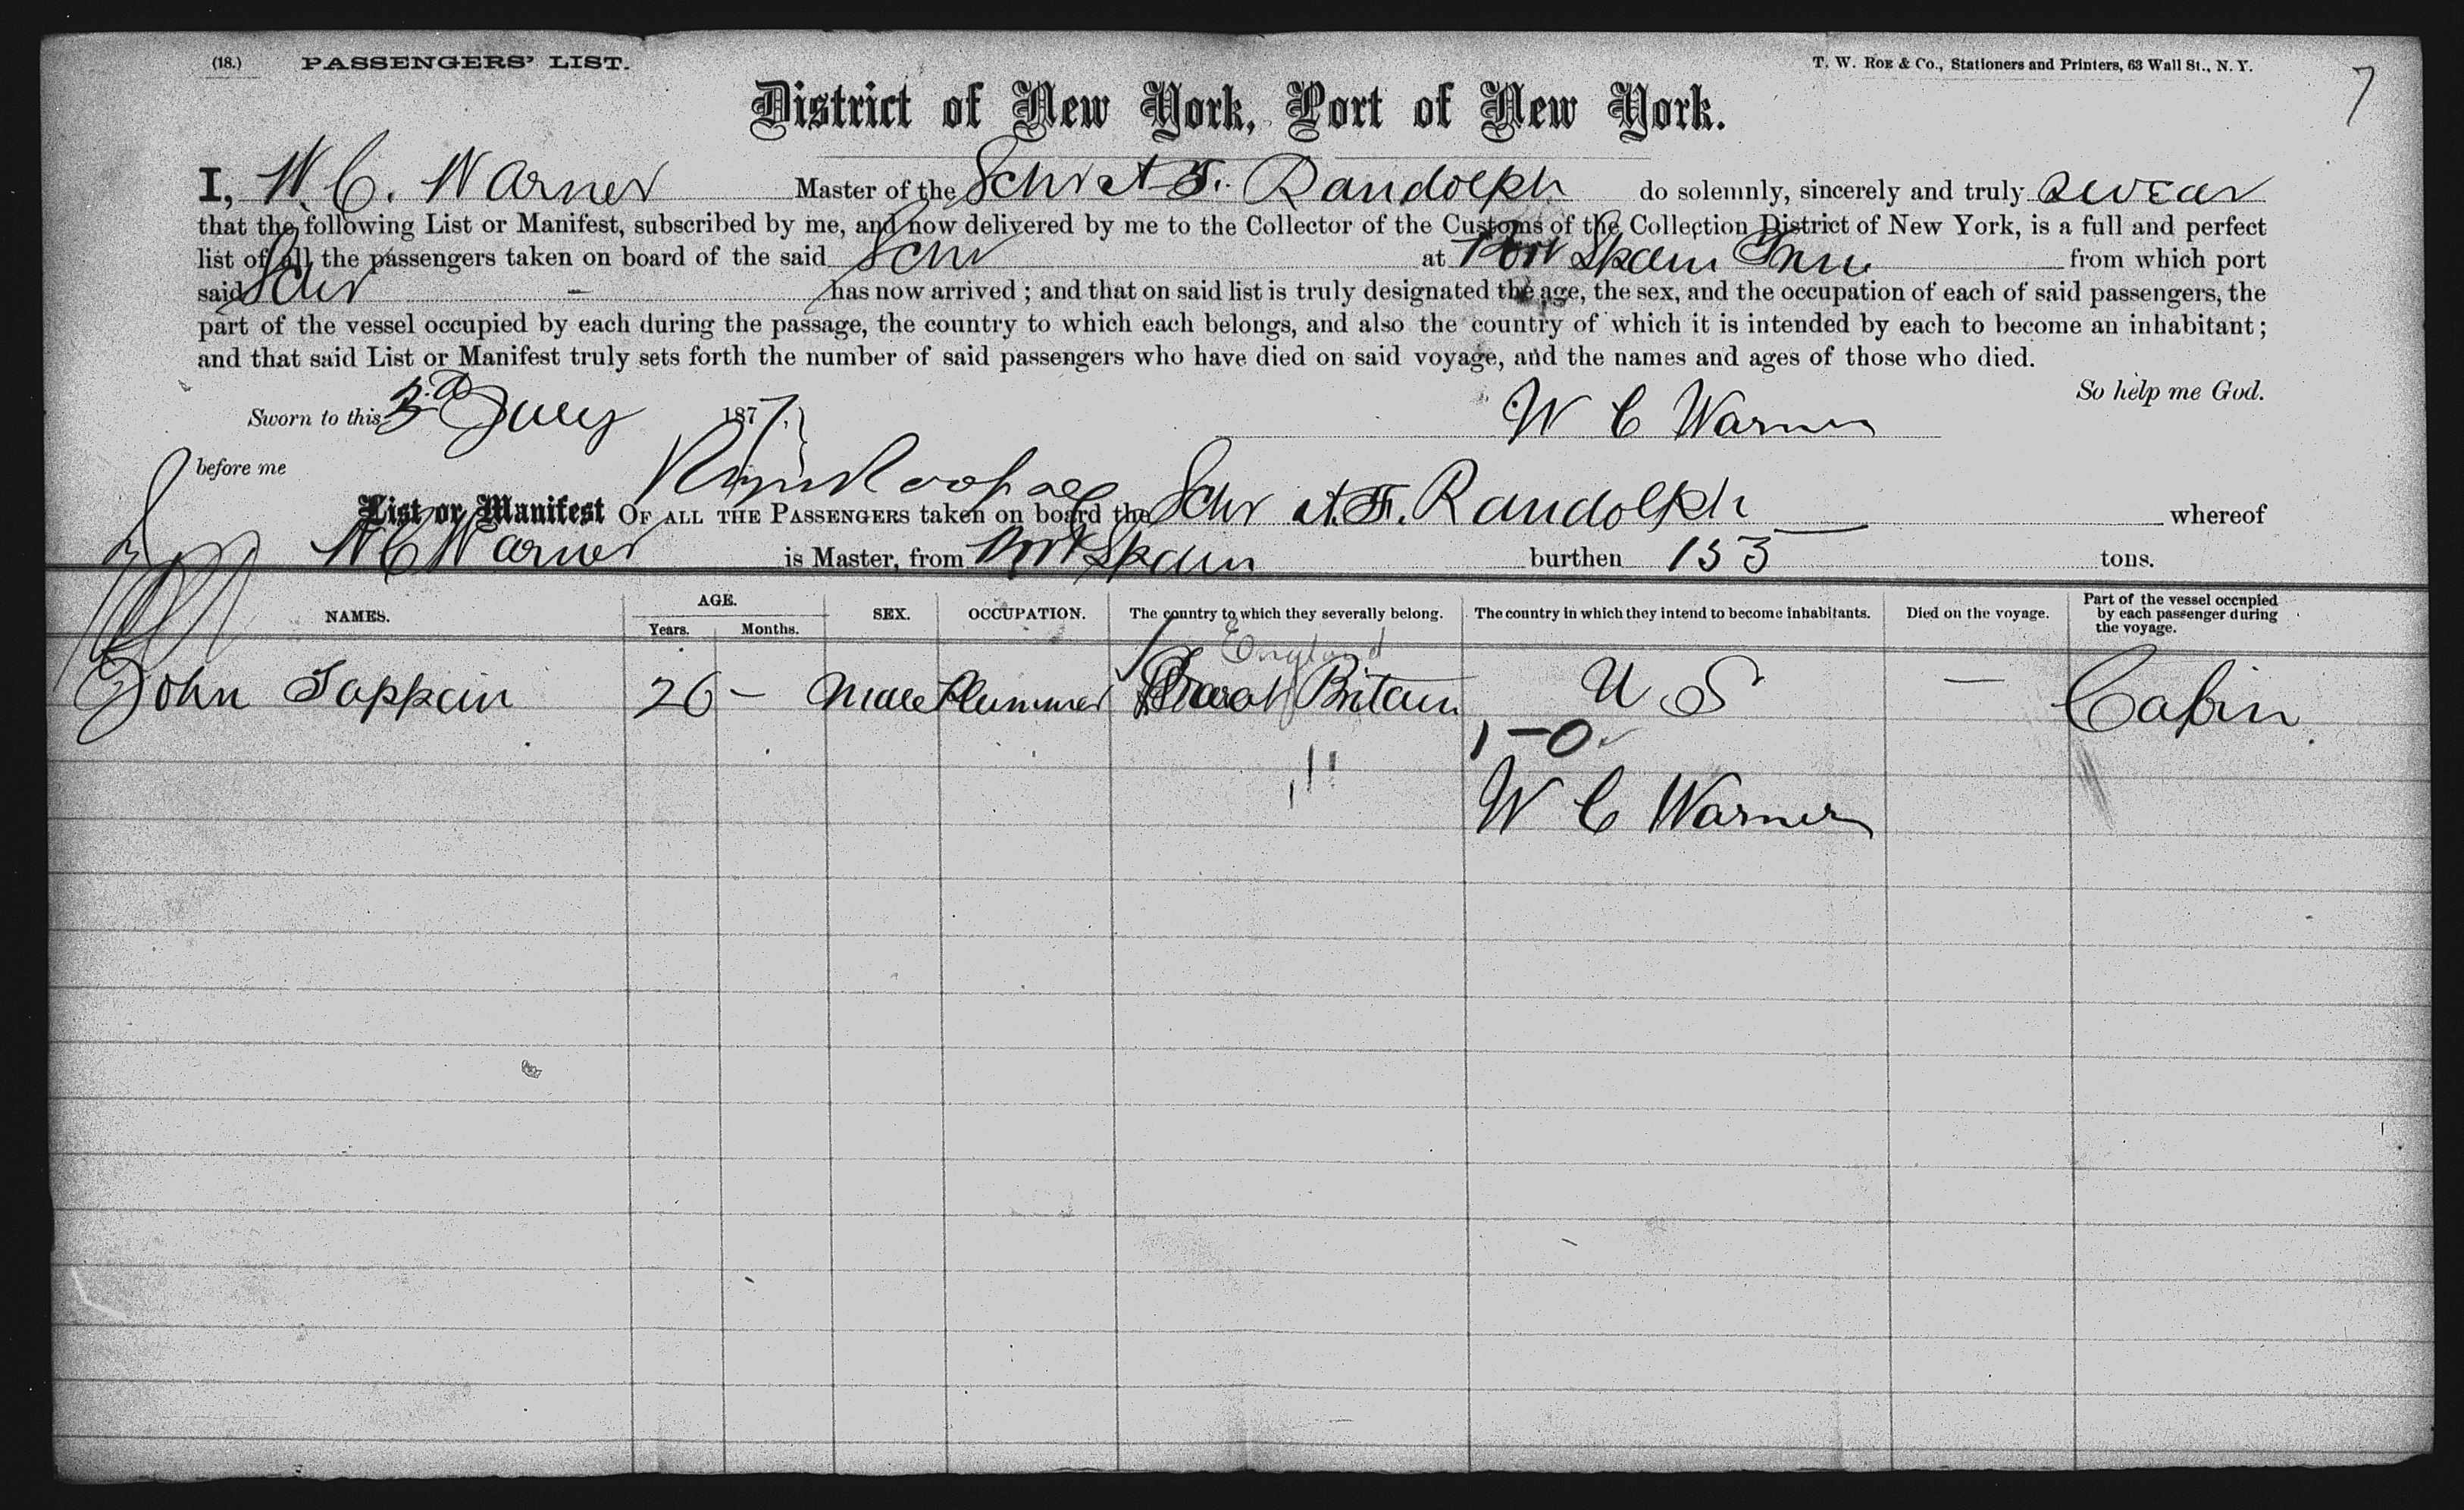 (18.) PASSENGERS' LIST.
T. W. Roe & Co., Stationers and Printers, 63 Wall St., N. Y.
7
District of New York, Port of New York.
I, W. C. Warner Master of the Schr A. F. Randolph do solemnly, sincerely and truly swear
that the following List or Manifest, subscribed by me, and now delivered by me to the Collector of the Customs of the Collection District of New York, is a full and perfect
list of all the passengers taken on board of the said Schr at Port Spain from which port
said Schr has now arrived ; and that on said list is truly designated the age, the sex, and the occupation of each of said passengers, the
part of the vessel occupied by each during the passage, the country to which each belongs, and also the country of which it is intended by each to become an inhabitant ;
and that said List or Manifest truly sets forth the number of said passengers who have died on said voyage, and the names and ages of those who died.
So help me God.
Sworn to this 3rd July 1877,
W C Warner
before me
List or Manifest OF ALL THE PASSENGERS taken on board the Schr A. F. Randolph whereof
W C Warner is Master, from Port Spain burthen 153 tons.
NAMES. AGE. Years. Months. SEX. OCCUPATION. The country to which they severally belong. The country in which they intend to become inhabitants. Died on the voyage. Part of the vessel occupied by each passenger during the voyage.
England
John Tappain 26 – Male Plummer Great Britain U S — Cabin
1–0
W C Warner